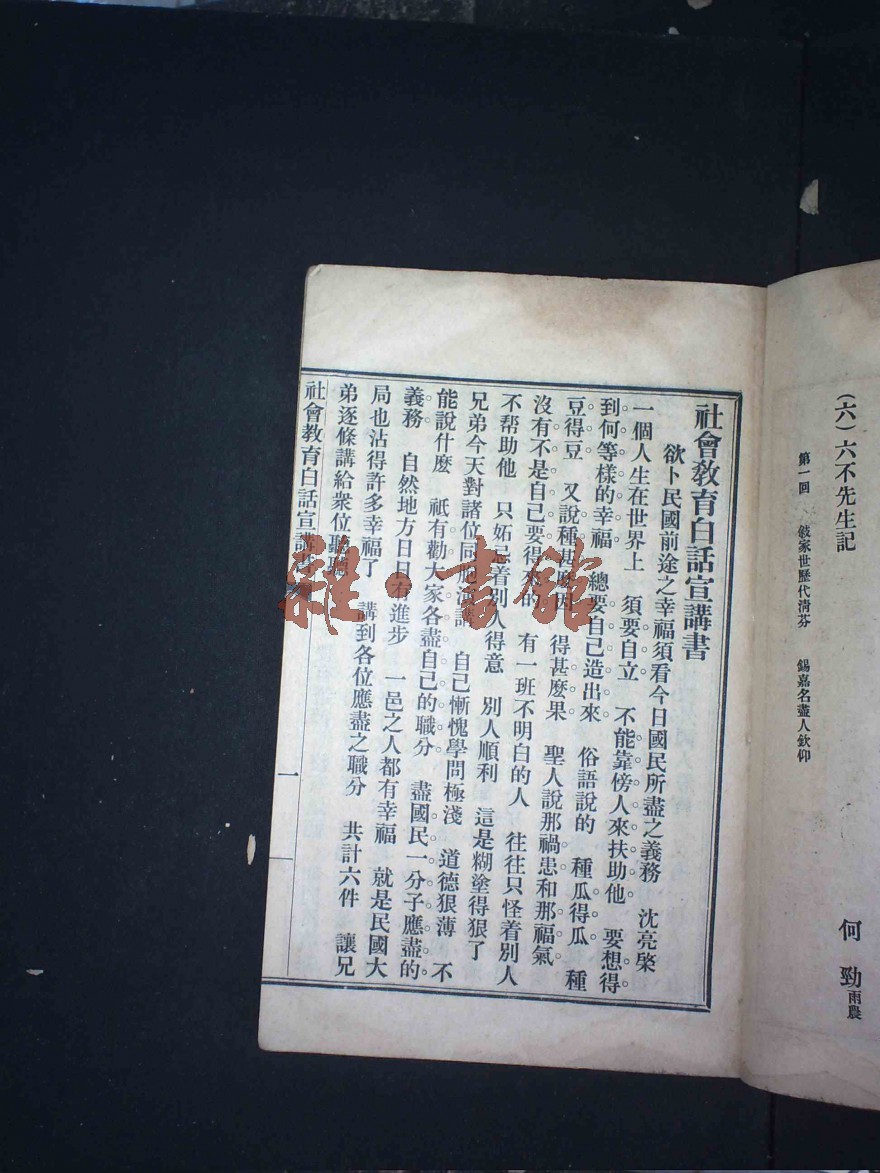 (六)六不先生記
第一回 敍家世歷代淸芬 錫嘉名盡人欽仰
何勁雨農
社會敎育白話宣講書
欲卜民國前途之幸福須看今日國民所盡之義務 沈亮棨
一個人生在世界上 須要自立 不能靠傍人來扶助他 要想得
到何等樣的幸福 總要自己造出來 俗語說的 種瓜得瓜 種
豆得豆 又說種甚麼因 得甚麼果 聖人說那禍患和那福氣
沒有不是自己要得來的 有一班不明白的人 往往只怪着別人
不帮助他 只妬忌着別人得意 別人順利 這是糊塗得狠了
兄弟今天對諸位同胞宣講 自己慚愧學問極淺 道德狠薄 不
能說什麼 祇有勸大家各盡自己的職分 盡國民一分子應盡的
義務 自然地方日日有進步 一邑之人都有幸福 就是民國大
局也沾得許多幸福了 講到各位應盡之職分 共計六件 讓兄
弟逐條講給衆位聽聽
社會敎育白話宣講書 一
雜·書館